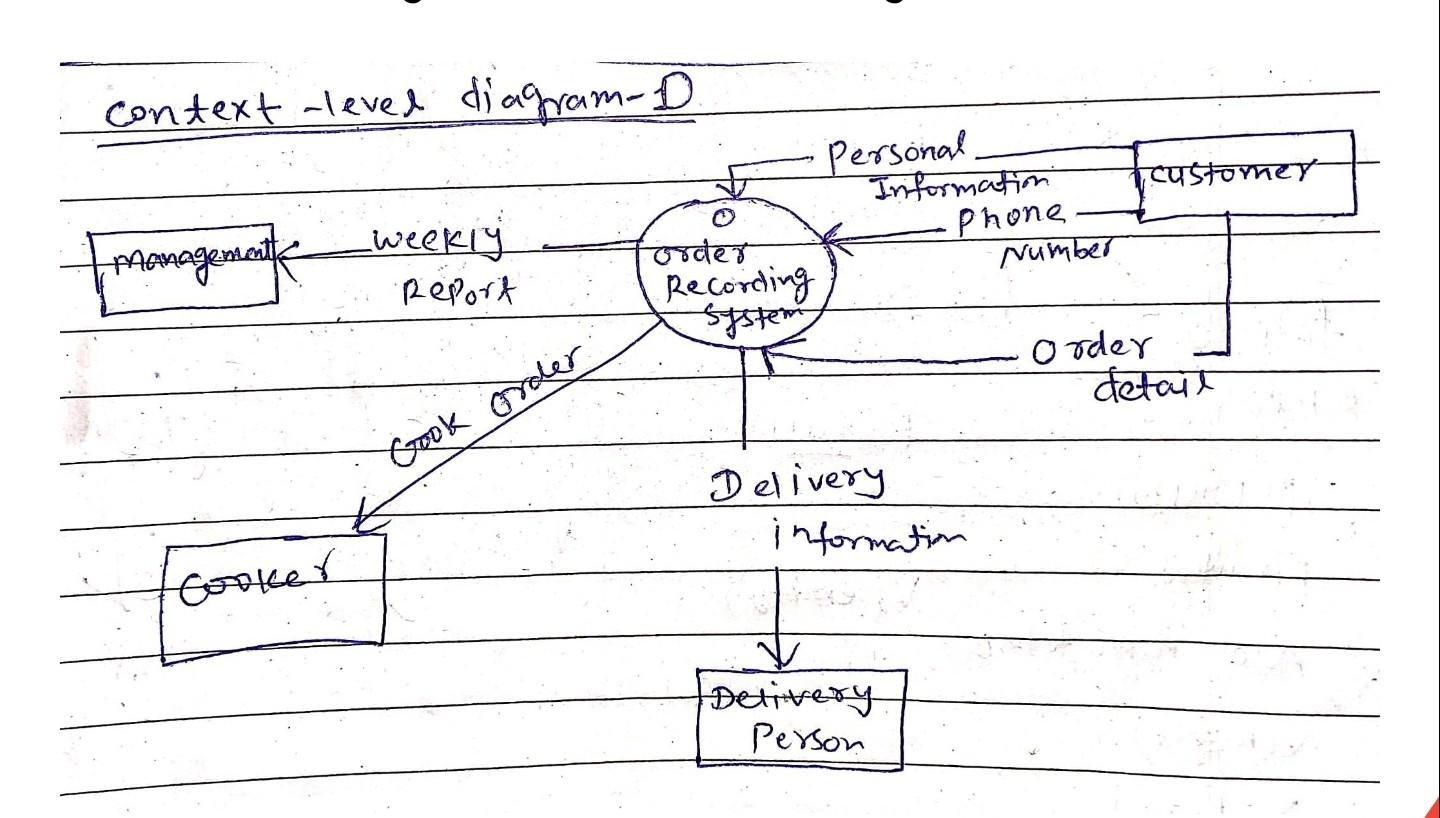 context-level diagram-D
Personal
Information
customer
Phone
Number
Management
Weekly
Report
O
order
Recording
System
Order
detail
Cook order
Delivery
information
Cooker
Delivery
Person